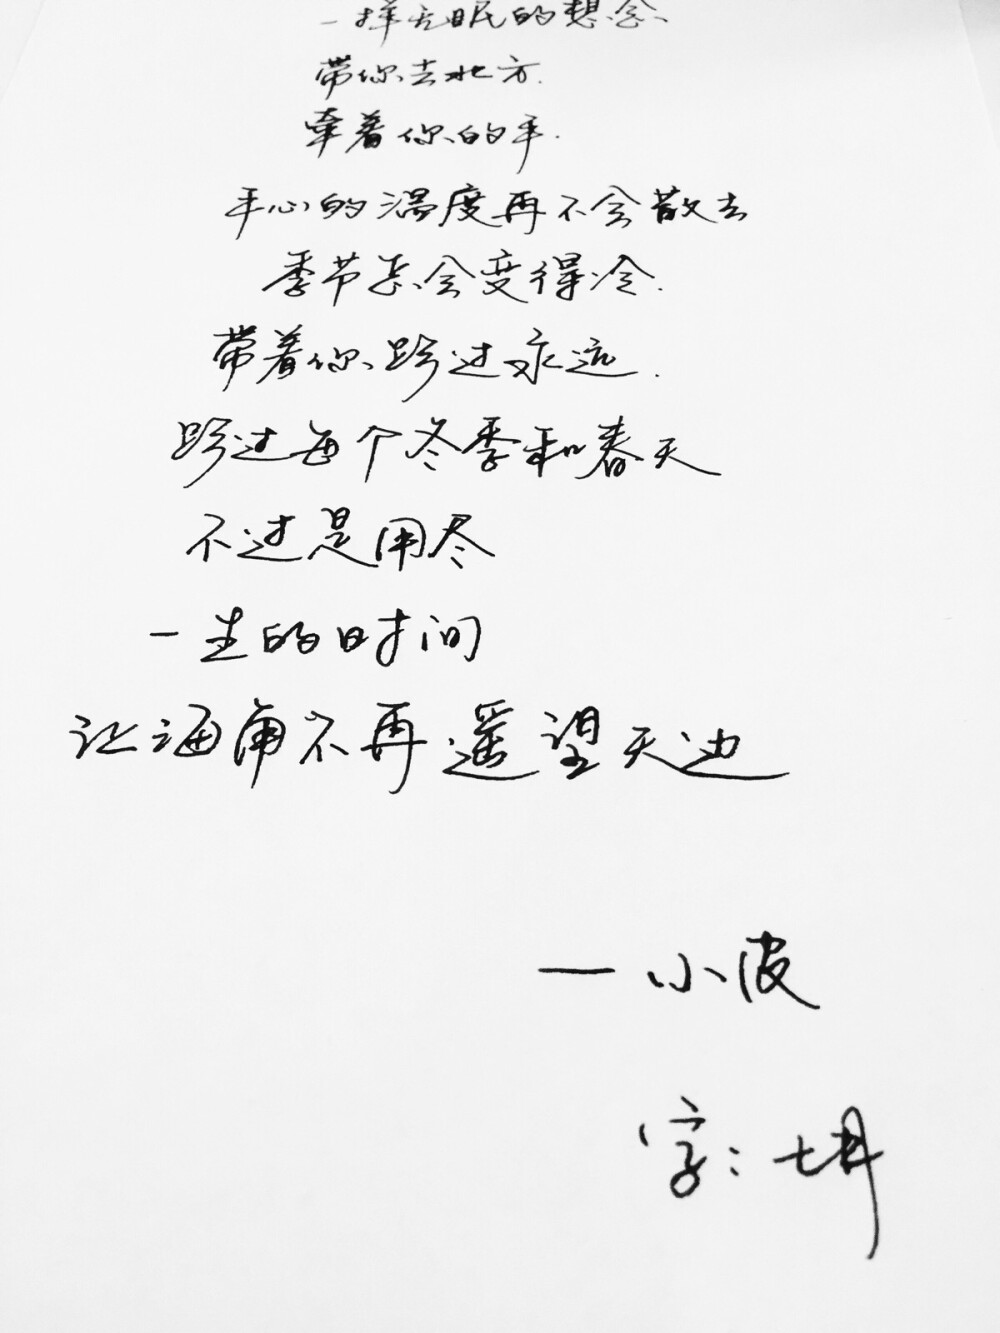 一样无眠的想念
带你去北方.
牵着你的手.
手心的温度再不会散去
季节怎会变得冷.
带着你跨过永远.
跨过每个冬季和春天
不过是用尽
一生的时间
让海角不再遥望天边
— 小皮
字：坤